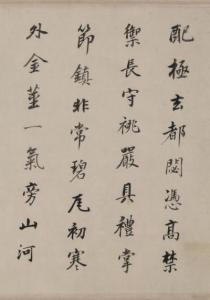 配極玄都閟憑高禁
禦長守祧嚴具禮掌
節鎮非常碧瓦初寒
外金莖一氣旁山河